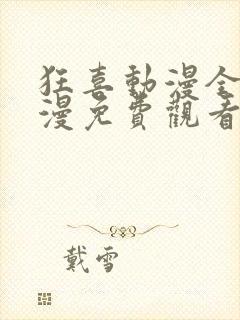 狂喜動漫全
漫免費觀看
戴雪